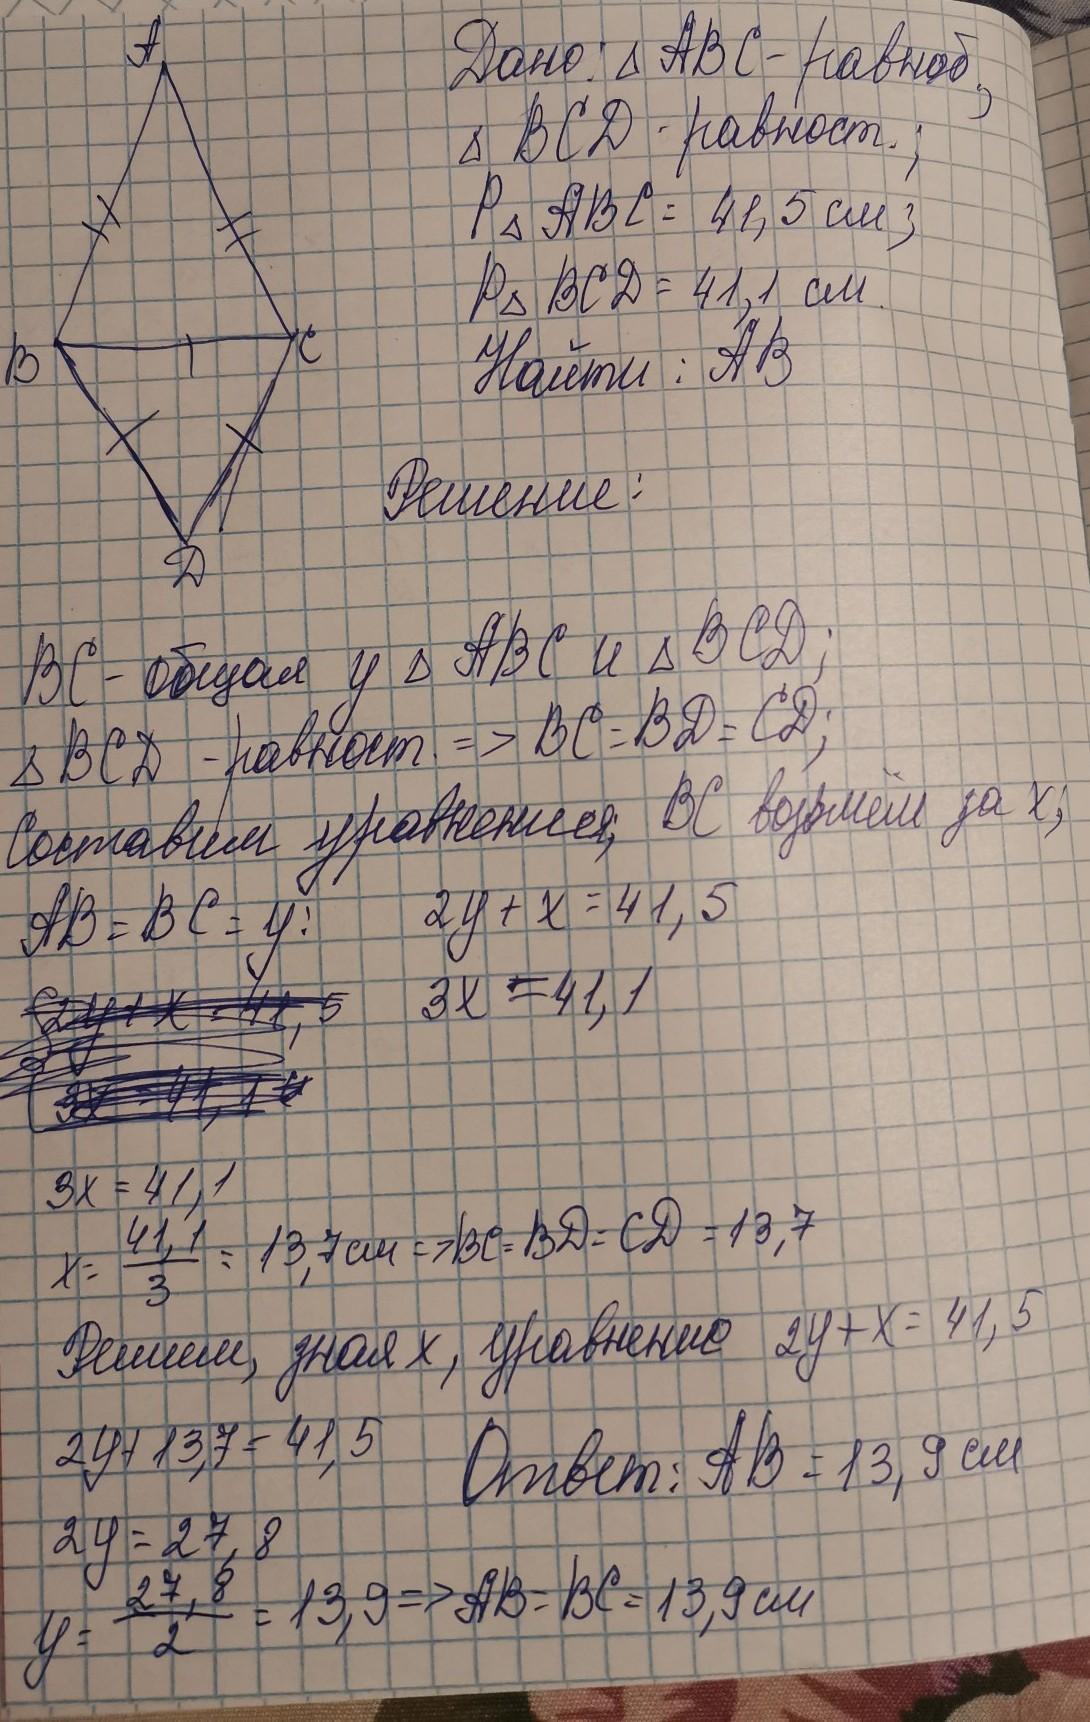 A
B
C
D
Дано: △ ABC - равноб.;
△ BCD - равност.;
P△ ABC = 41,5 см;
P△ BCD = 41,1 см.
Найти: AB
Решение:
BC - общая у △ ABC и △ BCD;
△ BCD - равност. => BC = BD = CD;
Составим уравнения; BC возьмём за x;
AB = BC = y: 2y + x = 41,5
2y + x = 41,5 3x = 41,1
3x = 41,1
3x = 41,1
x = 41,1/3 = 13,7 см => BC = BD = CD = 13,7
Решим, зная x, уравнение 2y + x = 41,5
2y + 13,7 = 41,5 Ответ: AB = 13,9 см
2y = 27,8
y = 27,8/2 = 13,9 => AB = BC = 13,9 см